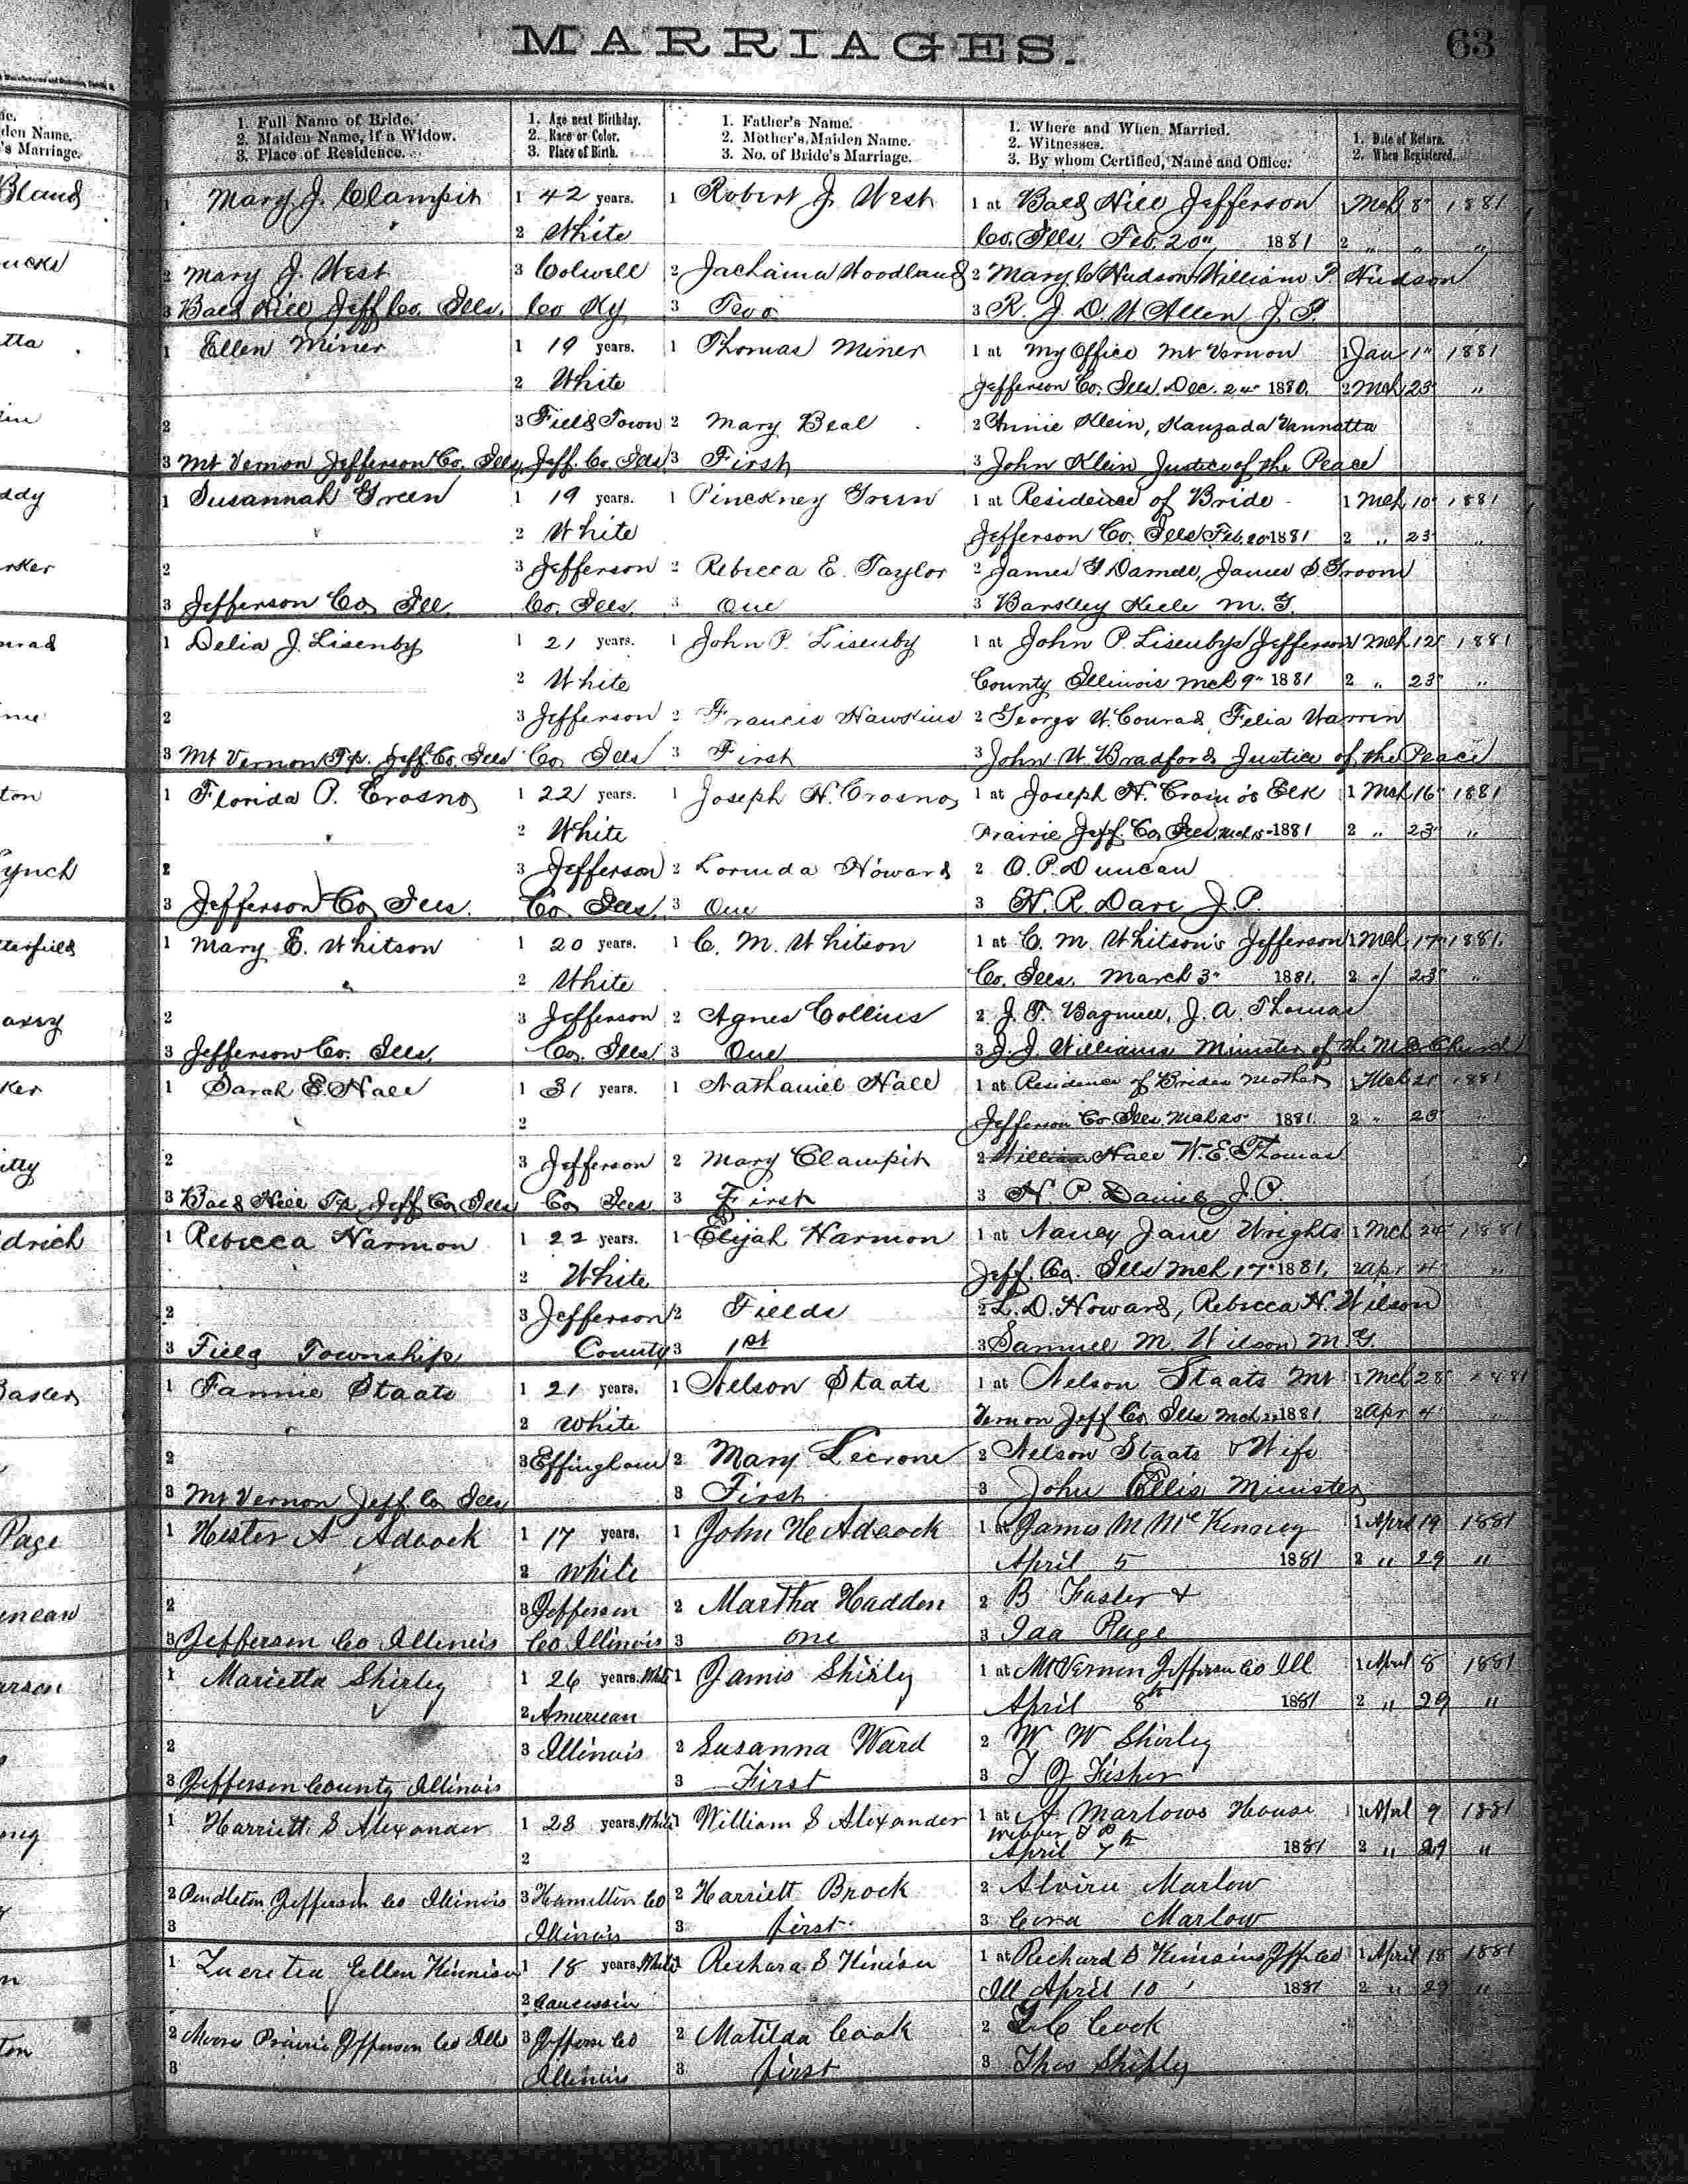 MARRIAGES.
63
den Name.
's Marriage.
1. Full Name of Bride.
2. Maiden Name, if a Widow.
3. Place of Residence.
1. Age next Birthday.
2. Race or Color.
3. Place of Birth.
1. Father's Name.
2. Mother's Maiden Name.
3. No. of Bride's Marriage.
1. Where and When Married.
2. Witnesses.
3. By whom Certified, Name and Office.
1. Date of Return.
2. When Registered.
Bland
1 Mary J. Clampit 1 42 years. 1 Robert J. West 1 at Bald Hill Jefferson 1 Mch 8" 1881
2 White Co. Ills. Feb. 20" 1881 2 " " "
2 Mary J. West 3 Colwell 2 Jachaina Woodland 2 Mary C Hudson, William P. Hudson
3 Bald Hill Jeff Co. Ills. Co Ky 3 Two 3 R. J. D. W. Allen J. P.
1 Ellen Miner 1 19 years. 1 Thomas Miner 1 at My Office Mt Vernon 1 Jan 1" 1881
2 White Jefferson Co. Ills. Dec. 24" 1880. 2 Mch 23" "
2 3 Field Town 2 Mary Beal 2 Annie Klein, Kanzada Vannatta
3 Mt Vernon Jefferson Co. Ills. Jeff. Co. Ills 3 First 3 John Klein Justice of the Peace
1 Susannah Green 1 19 years. 1 Pinckney Green 1 at Residence of Bride 1 Mch 10" 1881
2 White Jefferson Co. Ills Feb. 20" 1881 2 " 23" "
2 3 Jefferson 2 Rebecca E. Taylor 2 James Darnell, James S. Groom
3 Jefferson Co, Ill. Co. Ills. 3 One 3 Barkley Keele M. G.
1 Delia J. Lisenby 1 21 years. 1 John P. Lisenby 1 at John P. Lisenbys Jefferson 1 Mch 12" 1881
2 White County Illinois Mch 9" 1881 2 " 23" "
2 3 Jefferson 2 Francis Hawkins 2 George W. Conrad, Felia Warren
3 Mt Vernon Tp. Jeff. Co. Ills Co Ills 3 First 3 John W. Bradford Justice of the Peace
1 Florida P. Crosno 1 22 years. 1 Joseph H. Crosno 1 at Joseph H. Crosno's Elk 1 Mch 16" 1881
2 White Prairie Jeff. Co, Ills. 1881 2 " 23" "
2 3 Jefferson 2 Lorinda Howard 2 O. P. Duncan
3 Jefferson Co, Ills. Co Ills. 3 One 3 H. R. Dare J. P.
1 Mary E. Whitson 1 20 years. 1 C. M. Whitson 1 at C. M. Whitson's Jefferson 1 Mch 17" 1881.
2 White Co. Ills. March 3" 1881. 2 " 23" "
2 3 Jefferson 2 Agnes Collins 2 J. T. Bagwell, J. A. Thomas
3 Jefferson Co. Ills. Co. Ills 3 One 3 J. J. Williams Minister of the M E Church
1 Sarah E. Hall 1 31 years. 1 Nathaniel Hall 1 at Residence of Brides Mother 1 Mch 21" 1881
2 Jefferson Co Ills. 1881. 2 " 23" "
2 3 Jefferson 2 Mary Clampit 2 William Hall W. E. Thomas
3 Bald Hill Tp, Jeff Co Ills Co Ills 3 First 3 H. P. Daniel J. P.
1 Rebecca Harmon 1 22 years. 1 Elijah Harmon 1 at Nancy Jane Wrights 1 Mch 24" 1881
2 White Jeff. Co. Ills Mch 17" 1881. 2 Apr 4" "
2 3 Jefferson 2 Fields 2 L. D. Howard, Rebecca H. Wilson
3 Field Township County 3 1st 3 Samuel M. Wilson M. G.
1 Fannie Staats 1 21 years. 1 Nelson Staats 1 at Nelson Staats Mt 1 Mch 28" 1881
2 White Vernon Jeff Co Ills Mch 1881 2 Apr 4" "
2 3 Effingham 2 Mary Lecrone 2 Nelson Staats & Wife
3 Mt Vernon Jeff. Co Ills 3 First 3 John Ellis Minister
Page
1 Hester A Adcock 1 17 years. 1 John H Adcock 1 at James M McKenney 1 April 19 1881
2 White April 5 1881 2 " 29 "
2 3 Jefferson 2 Martha Hadden 2 B Fasler &
3 Jefferson Co Illinois Co Illinois 3 one 3 Page
1 Marietta Shirley 1 26 years. White 1 James Shirley 1 at Mt Vernon Jefferson Co Ill 1 April 8 1881
2 American April 8th 1881 2 " 29 "
2 3 Illinois 2 Susanna Ward 2 W W Shirley
3 Jefferson County Illinois 3 First 3 T J Fisher
1 Harriett S Alexander 1 28 years. White 1 William S Alexander 1 at A Marlows House 1 April 9 1881
Webber T P
2 April 7th 1881 2 " 29 "
2 Pendleton Jefferson Co Illinois 3 Hamilton Co 2 Harriett Brock 2 Alvira Marlow
3 Illinois 3 first 3 Marlow
1 Lucretia Ellen Kinnison 1 18 years. White 1 Richard S Kinison 1 at Richard S Kinisons Jeff Co 1 April 18 1881
2 Caucasian Ill April 10 1881 2 " 29 "
2 Moore Prairie Jefferson Co Ills 3 Jefferson Co 2 Matilda Cook 2 Cook
3 Illinois 3 first 3 Thos Shipley